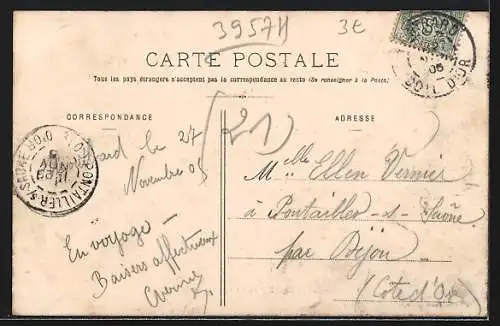 39574
3€
CARTE POSTALE
Tous les pays étrangers n'acceptent pas la correspondance au recto (Se renseigner à la Poste).
CORRESPONDANCE
ADRESSE
(21)
le 27
Novembre 05
En voyage
Baisers affectueux
Melle Ellen Vernier
à Pontailler-s-Saône
par Dijon
(Côte d'Or)
PONTAILLER S/ SAONE
COTE D'OR
05